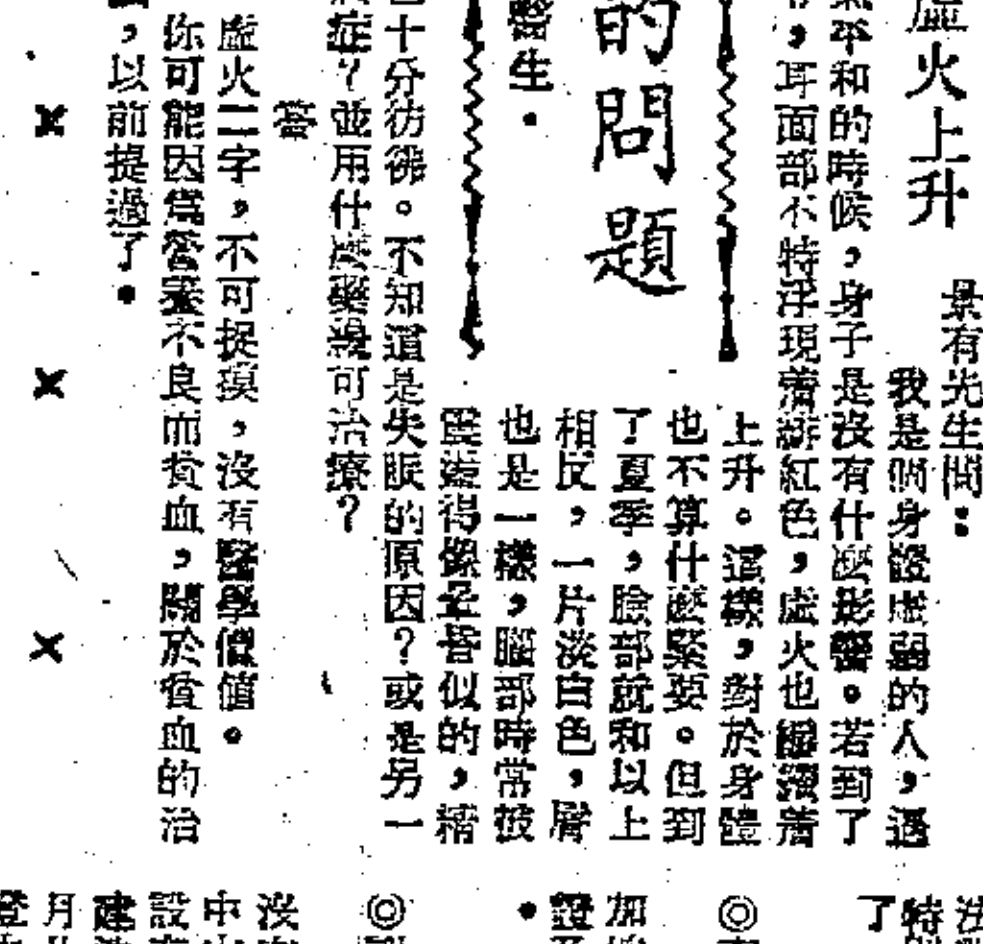 虛火上升
景有先生問：
我是個身體虛弱的人，遇
氣平和的時候，身子是沒有什麼影響。若到了
，耳面部不特浮現着緋紅色，虛火也繼續着
上升。這樣，對於身體
也不算什麼緊要。但到
了夏季，臉部就和以上
相反，一片淡白色，唇
也是一樣，腦部時常被
震盪得像暈昏似的，精
十分彷彿。不知道是失眠的原因？或是另一
症？並用什麼藥纔可治療？
的問題
醫生．
答
虛火二字，不可捉摸，沒有醫學價值。
你可能因爲營養不良而貧血，關於貧血的治
，以前提過了．
× × ×
了特
◎
加
．證
◎
沒
中
設
建
月
登